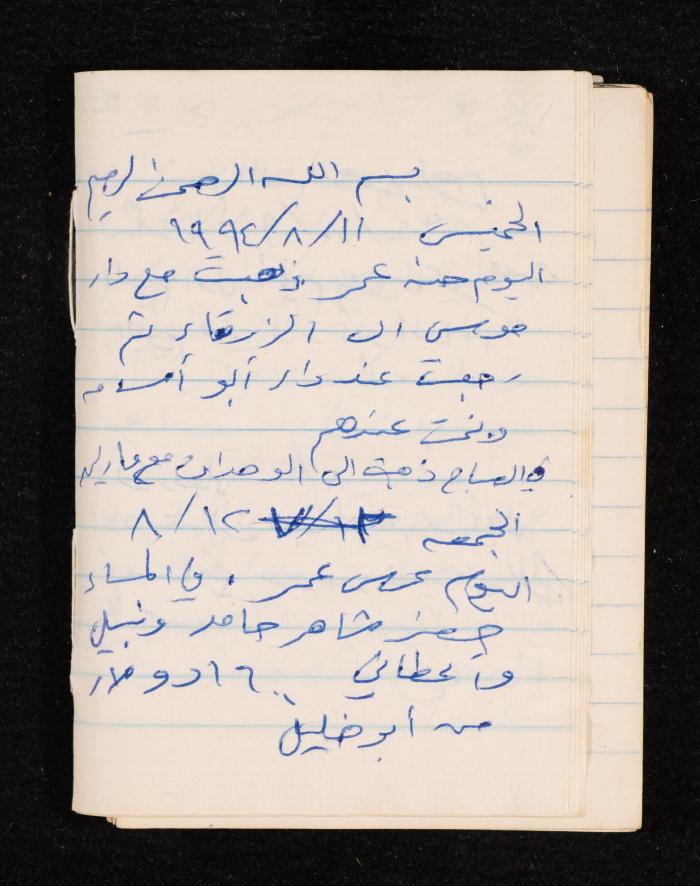 بسم الله الرحمن الرحيم
الخميس ١١/٨/١٩٩٤
اليوم حنه عمر ذهبت مع دار
موسى الى الزرقاء ثم
رجعت عند دار أبو أسامه
ونمت عندهم
في الصباح ذهبت الى الوحدات مع
الجمعه ١٢/٧ ١٢/٨
اليوم عرس عمر . في المساء
حضر شاهر حامد ونبيل
وأعطاني ١٦٠٠ دولار
من أبو خليل